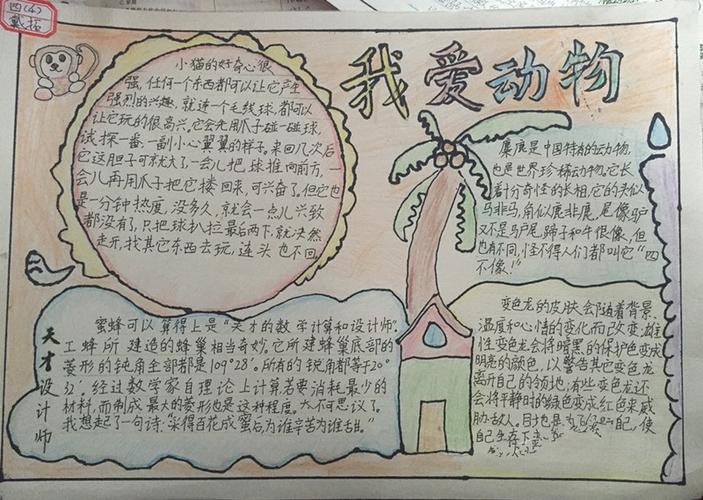 四(4)
我爱动物
小猫的好奇心很
强,任何一个东西都可以让它产生
强烈的兴趣,就连一个毛线球,都可以
让它玩的很高兴。它会先用爪子碰一碰球,
试探一番,一副小心翼翼的样子。来回几次后
它这胆子可就大了,一会儿把球推向前方,一
会儿再用爪子把它搂回来,可兴奋了。但它也
是一分钟热度,没多久,就会一点儿兴致
都没有了,只把球扒拉最后两下,就决然
走开,找其它东西去玩,连头也不回
麋鹿是中国特有的动物,
也是世界珍稀动物。它长
着十分奇怪的长相,它的头似
马非马,角似鹿非鹿,尾像驴
又不是驴尾,蹄子和牛很像,但
也有不同,怪不得人们都叫它"四
不像!"
天才设计师
蜜蜂可以算得上是"天才的数学计算和设计师"。
工蜂所建造的蜂巢相当奇妙。它所建蜂巢底部的
菱形的钝角全部都是109°28′。所有的锐角都等于70°
32′。经过数学家自理论上计算,若要消耗最少的
材料,而制成最大的菱形也是这种程度。太不可思议了。
我想起了一句诗:"采得百花成蜜后,为谁辛苦为谁甜。"
变色龙的皮肤会随着背景、
温度和心情的变化而改变;雄
性变色龙会将暗黑的保护色变成
明亮的颜色,以警告其它变色龙
离开自己的领地;有些变色龙还
会将平静时的绿色变成红色来威
胁敌人。目地是为了 自己,使
自己生存下去